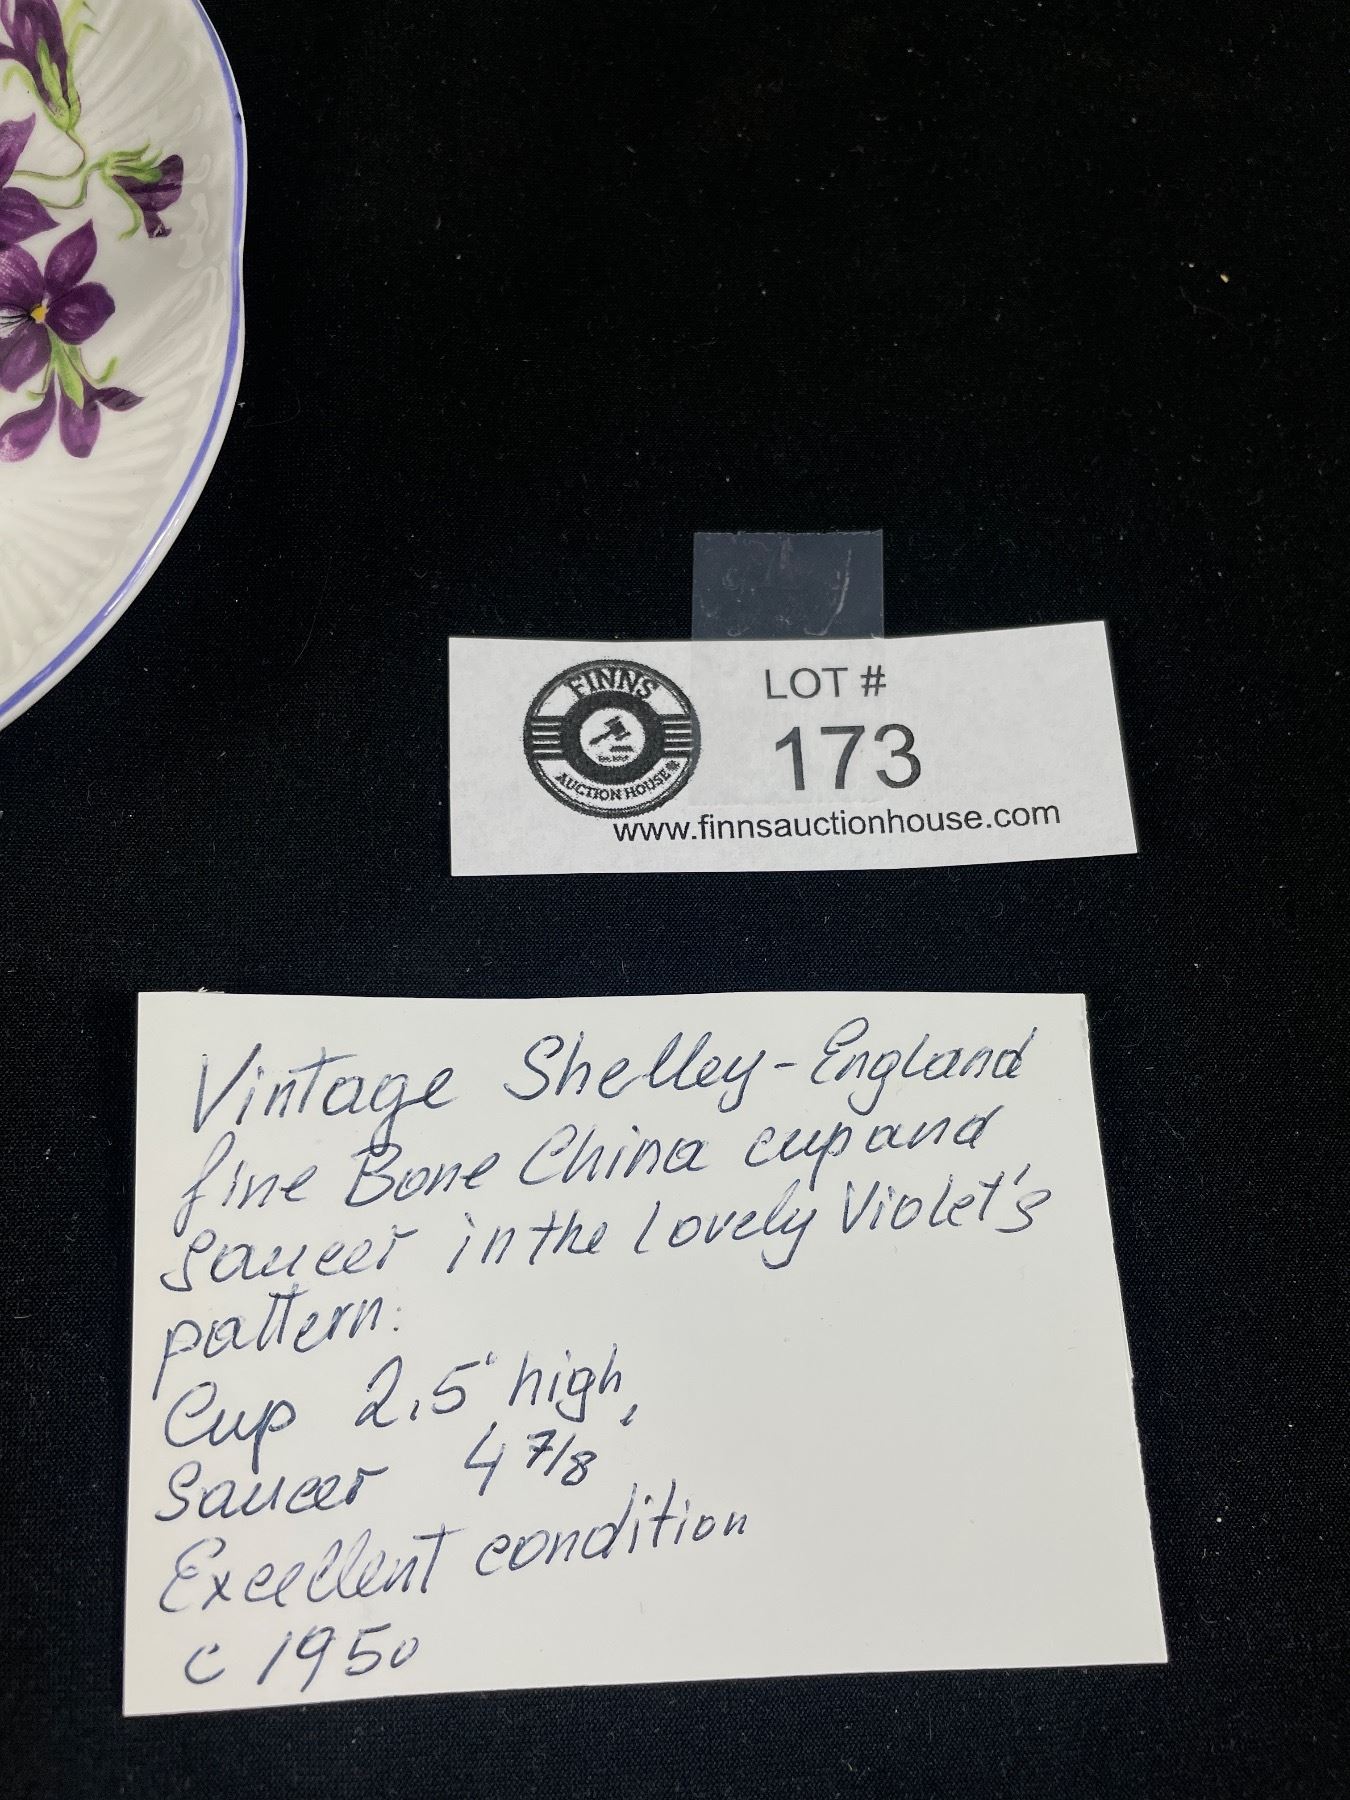 FINNS
AUCTION HOUSE
LOT #
173
www.finnsauctionhouse.com
Vintage Shelley-England
fine Bone China cup and
saucer in the Lovely Violet's
pattern.
Cup 2.5" high,
Saucer 4 7/8"
Excellent condition
c 1950